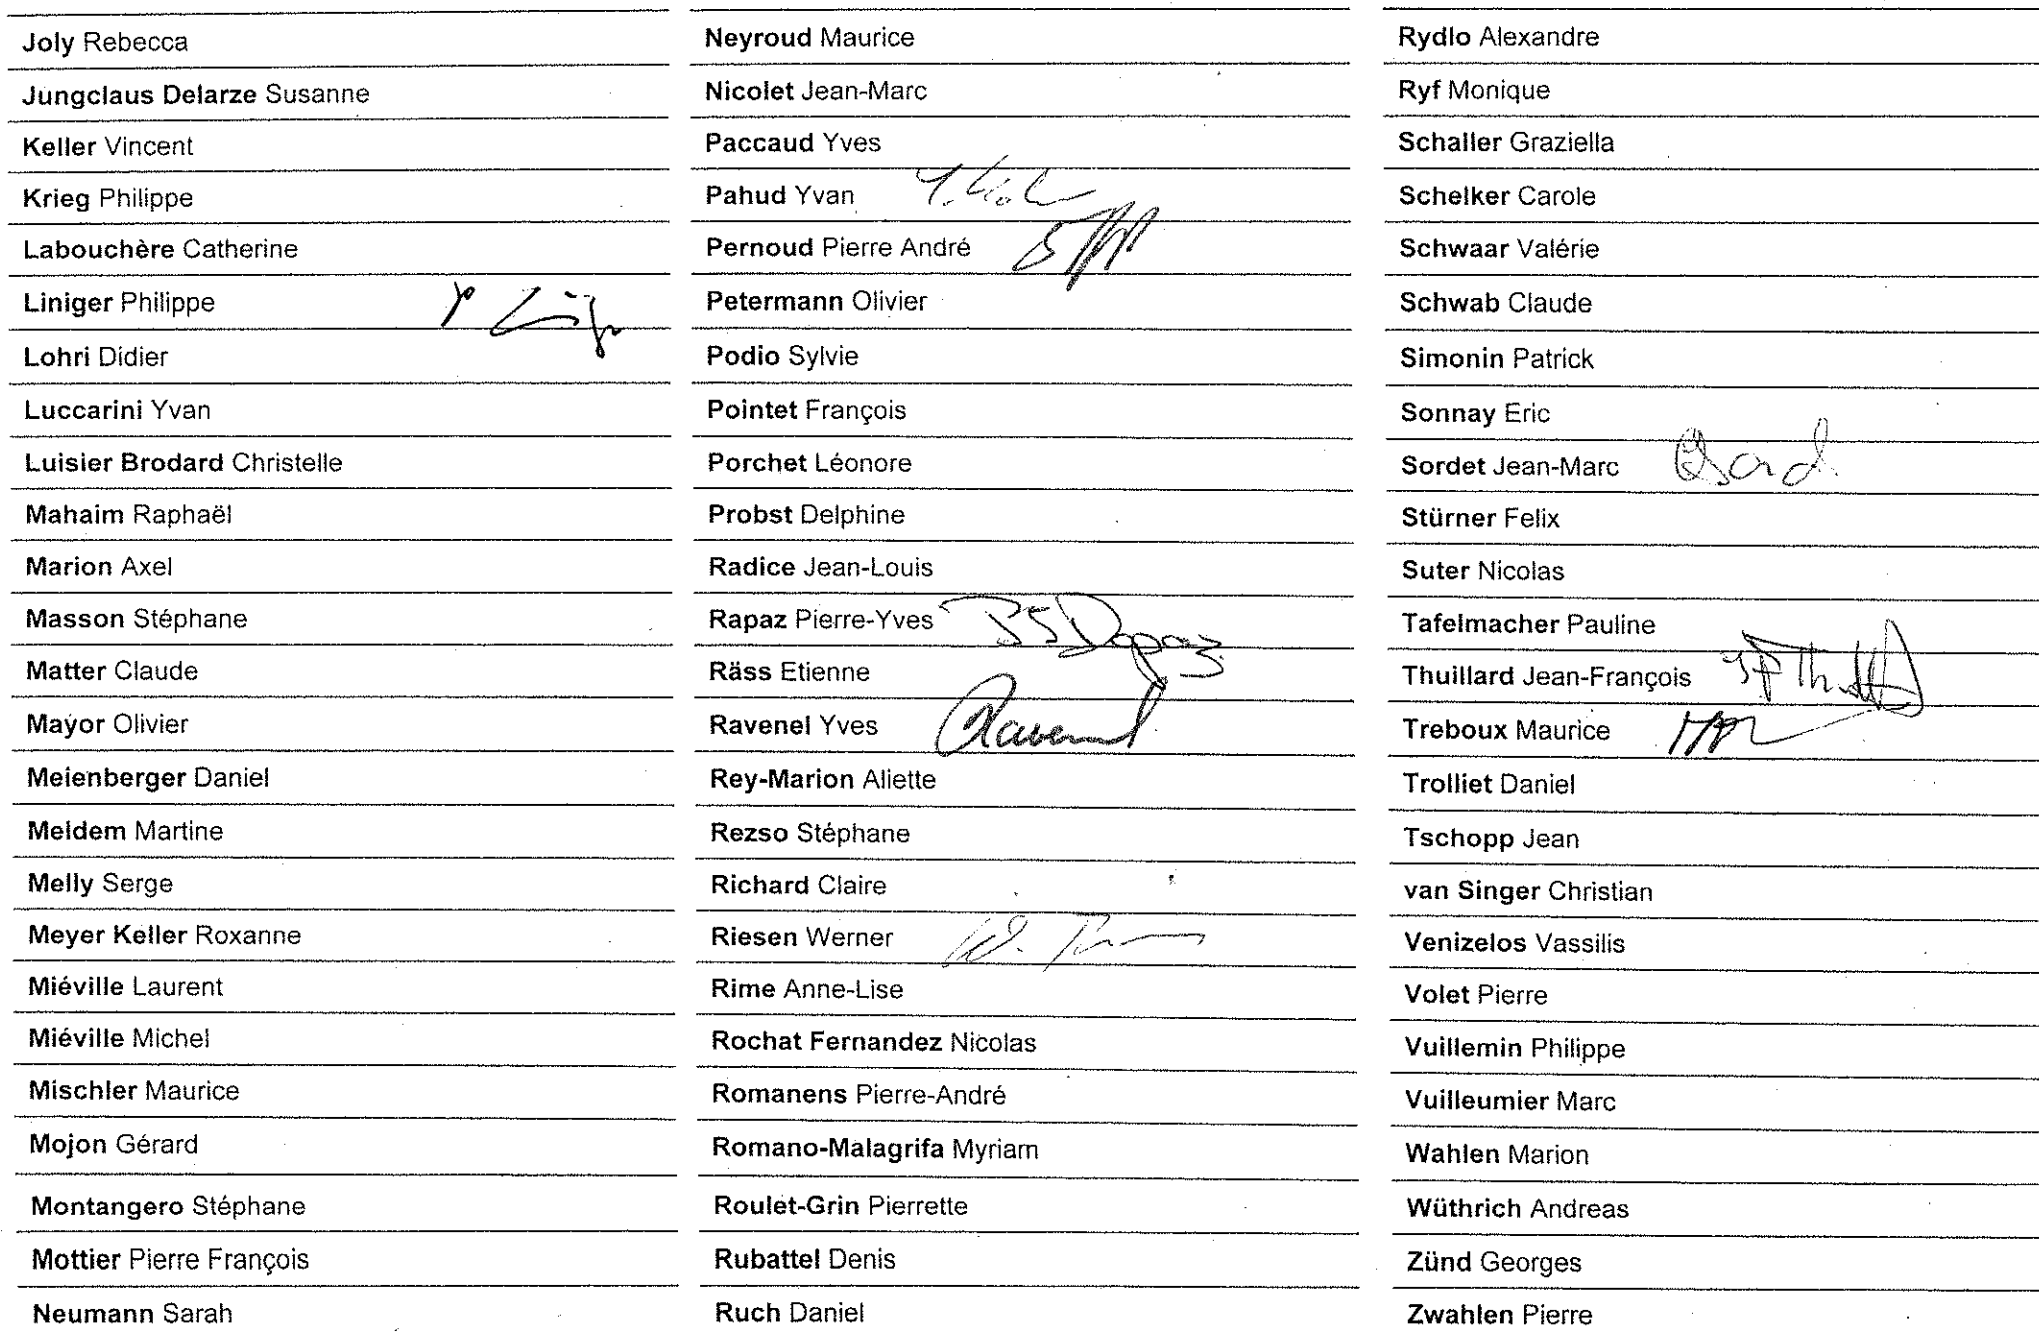 Joly Rebecca
Jungclaus Delarze Susanne
Keller Vincent
Krieg Philippe
Labouchère Catherine
Liniger Philippe
Lohri Didier
Luccarini Yvan
Luisier Brodard Christelle
Mahaim Raphaël
Marion Axel
Masson Stéphane
Matter Claude
Mayor Olivier
Meienberger Daniel
Meldem Martine
Melly Serge
Meyer Keller Roxanne
Miéville Laurent
Miéville Michel
Mischler Maurice
Mojon Gérard
Montangero Stéphane
Mottier Pierre François
Neumann Sarah
Neyroud Maurice
Nicolet Jean-Marc
Paccaud Yves
Pahud Yvan
Pernoud Pierre André
Petermann Olivier
Podio Sylvie
Pointet François
Porchet Léonore
Probst Delphine
Radice Jean-Louis
Rapaz Pierre-Yves
Räss Etienne
Ravenel Yves Ravenel
Rey-Marion Aliette
Rezso Stéphane
Richard Claire
Riesen Werner
Rime Anne-Lise
Rochat Fernandez Nicolas
Romanens Pierre-André
Romano-Malagrifa Myriam
Roulet-Grin Pierrette
Rubattel Denis
Ruch Daniel
Rydlo Alexandre
Ryf Monique
Schaller Graziella
Schelker Carole
Schwaar Valérie
Schwab Claude
Simonin Patrick
Sonnay Eric
Sordet Jean-Marc
Stürner Felix
Suter Nicolas
Tafelmacher Pauline
Thuillard Jean-François
Treboux Maurice
Trolliet Daniel
Tschopp Jean
van Singer Christian
Venizelos Vassilis
Volet Pierre
Vuillemin Philippe
Vuilleumier Marc
Wahlen Marion
Wüthrich Andreas
Zünd Georges
Zwahlen Pierre